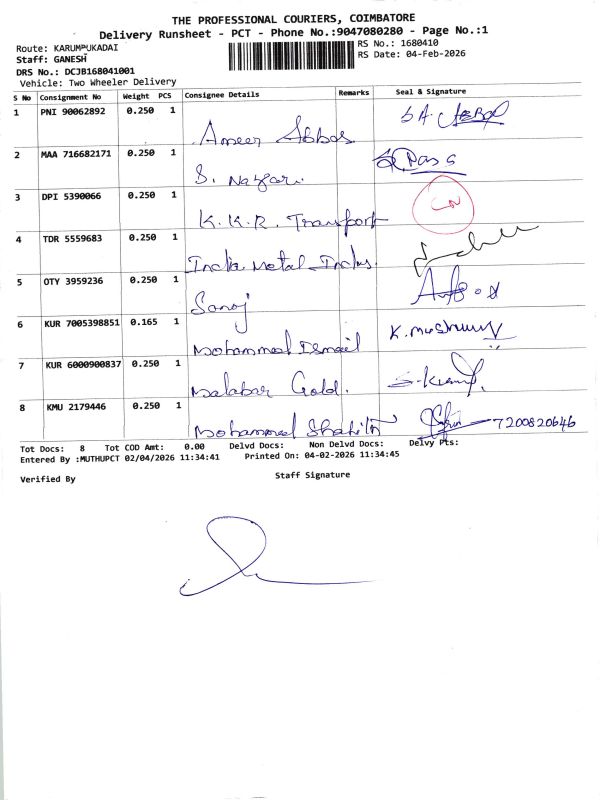 THE PROFESSIONAL COURIERS, COIMBATORE
Delivery Runsheet - PCT - Phone No.:9047080280 - Page No.:1
Route: KARUMPUKADAI
RS No.: 1680410
Staff: GANESH
RS Date: 04-Feb-2026
DRS No.: DCJB168041001
Vehicle: Two Wheeler Delivery
S No Consignment No Weight PCS Consignee Details Remarks Seal & Signature
1 PNI 90062892 0.250 1 Ameer Abbas
2 MAA 716682171 0.250 1 S. Nazar.
3 DPI 5390066 0.250 1 K.K.R. Transport
4 TDR 5559683 0.250 1 India Metal Indus.
5 OTY 3959236 0.250 1 Sanoj
6 KUR 7005398851 0.165 1 Mohammed Ismail
7 KUR 6000900837 0.250 1 Malabar Gold.
8 KMU 2179446 0.250 1 Mohammed 7200820646
Tot Docs: 8 Tot COD Amt: 0.00 Delvd Docs: Non Delvd Docs: Delvy Pts:
Entered By :MUTHUPCT 02/04/2026 11:34:41 Printed On: 04-02-2026 11:34:45
Verified By Staff Signature